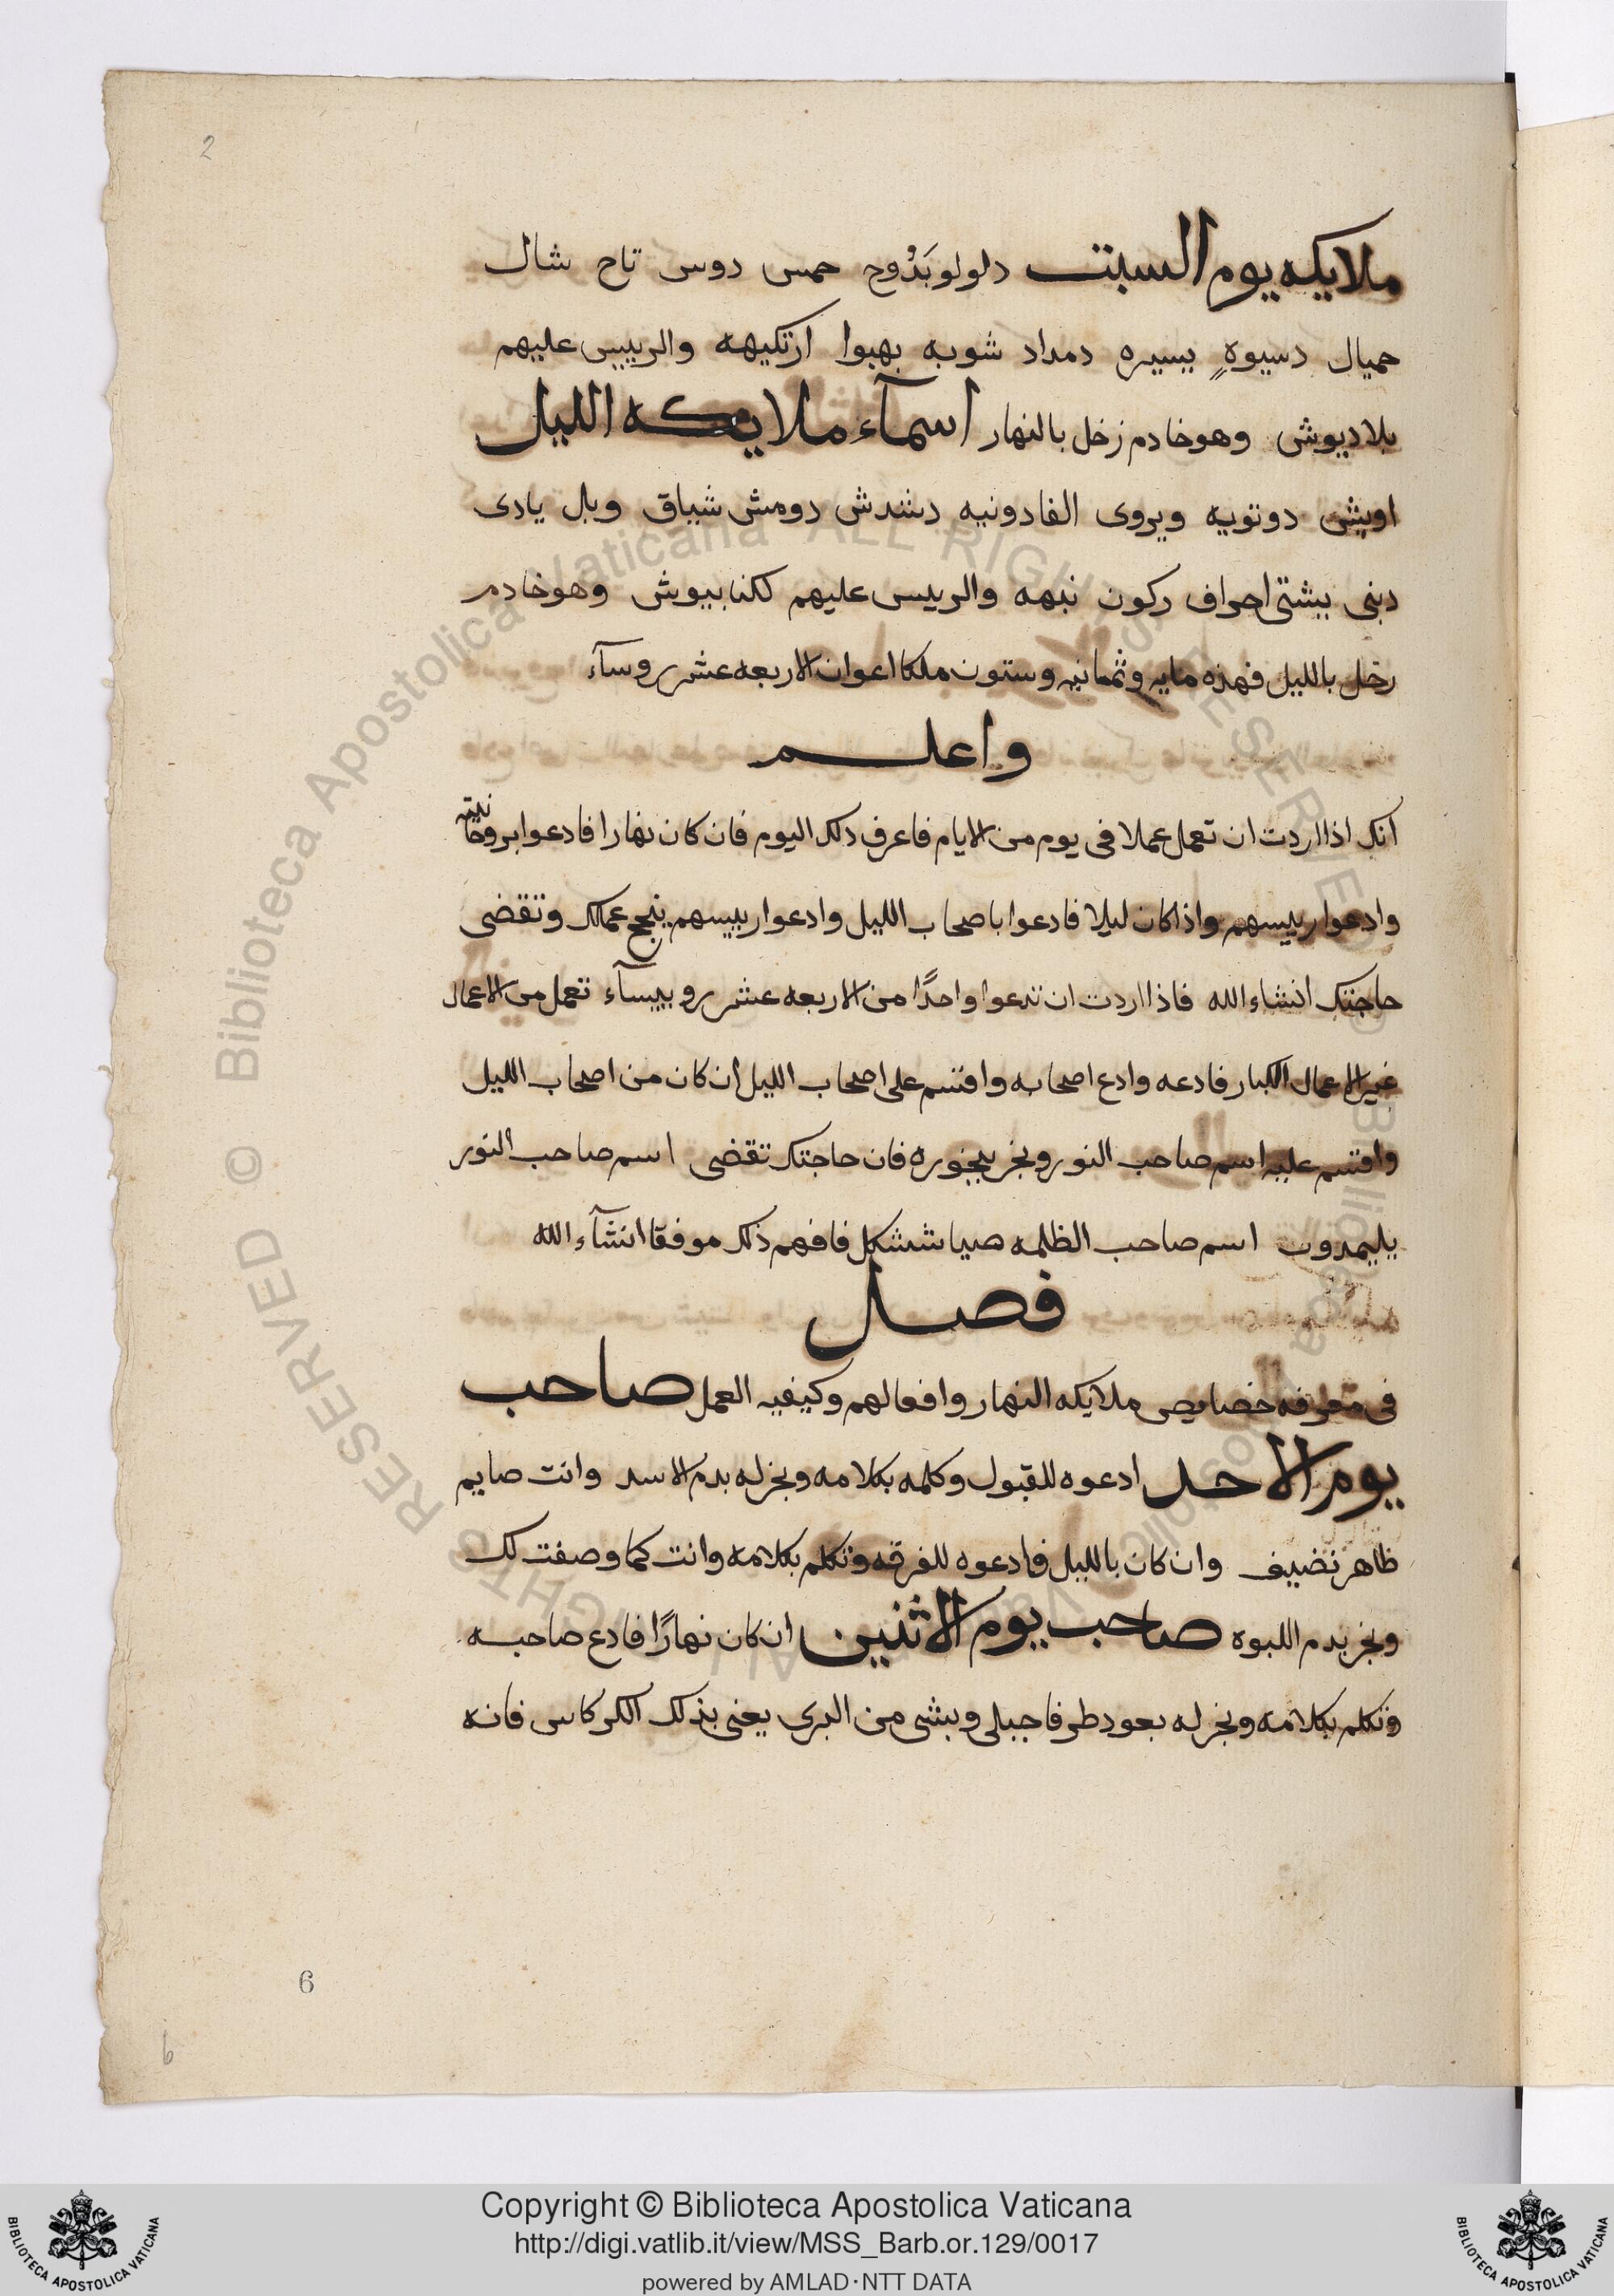 2
ملايكه يوم السبت دلولو بَدْوح حمس دوس تاح شال
حميال دسيوهٍ يسيره دمداد شوبه بهبوا ارتكيهه والرييس عليهم
بلاديوش وهو خادم زخل بالنهار اسمآء ملايكه الليل
اويشى دوتويه ويروى الفادونيه دشدش دومش شياق وبل يادى
دبنى بيشتى احراف ركون نبهه والرييس عليهم لكنابيوش وهو خادم
زخل بالليل فهذه مايه وثمانيه وستون ملكا اعوان الاربعه عشر روسآء
واعلم
انك اذا اردت ان تعمل عملا فى يوم من الايام فاعرف دلك اليوم فان كان نهارا فادعوا بروحانيته
وادعوا رييسهم واذا كان ليلا فادعوا باصحاب الليل وادعوا رييسهم ينجح عملك وتقضى
حاجتك انشاء الله فاذا اردت ان تدعوا واحدًا من الاربعه عشر روييسآء تعمل من الاعمال
غير الاعمال الكبار فادعه وادع اصحابه واقسم على اصحاب الليل ان كان من اصحاب الليل
واقسم عليه اسم صاحب النور وبخر ببخوره فان حاجتك تقضى اسم صاحب النور
يليمدون اسم صاحب الظلمه صيباششكل فافهم ذلك موفقا انشآء الله
فصل
فى معرفه خصايص ملايكه النهار وافعالهم وكيفيه العمل صاحب
يوم الاحد ادعوه للقبول وكلمه بكلامه وبخر له بدم الاسد وانت صايم
ظاهر نضيف وان كان بالليل فادعوه للفرقه وتكلم بكلامه وانت كما وصفت لك
وبخر بدم اللبوه صاحب يوم الاثنين ان كان نهارًا فادع صاحبه
وتكلم بكلامه وبخر له بعود طرفا جبلى وبشى من البرى يعنى بذلك الكركاس فانه
6
b
© Biblioteca Apostolica Vaticana ALL RIGHTS RESERVED
Copyright © Biblioteca Apostolica Vaticana
http://digi.vatlib.it/view/MSS_Barb.or.129/0017
powered by AMLAD·NTT DATA
BIBLIOTECA APOSTOLICA VATICANA
BIBLIOTECA APOSTOLICA VATICANA